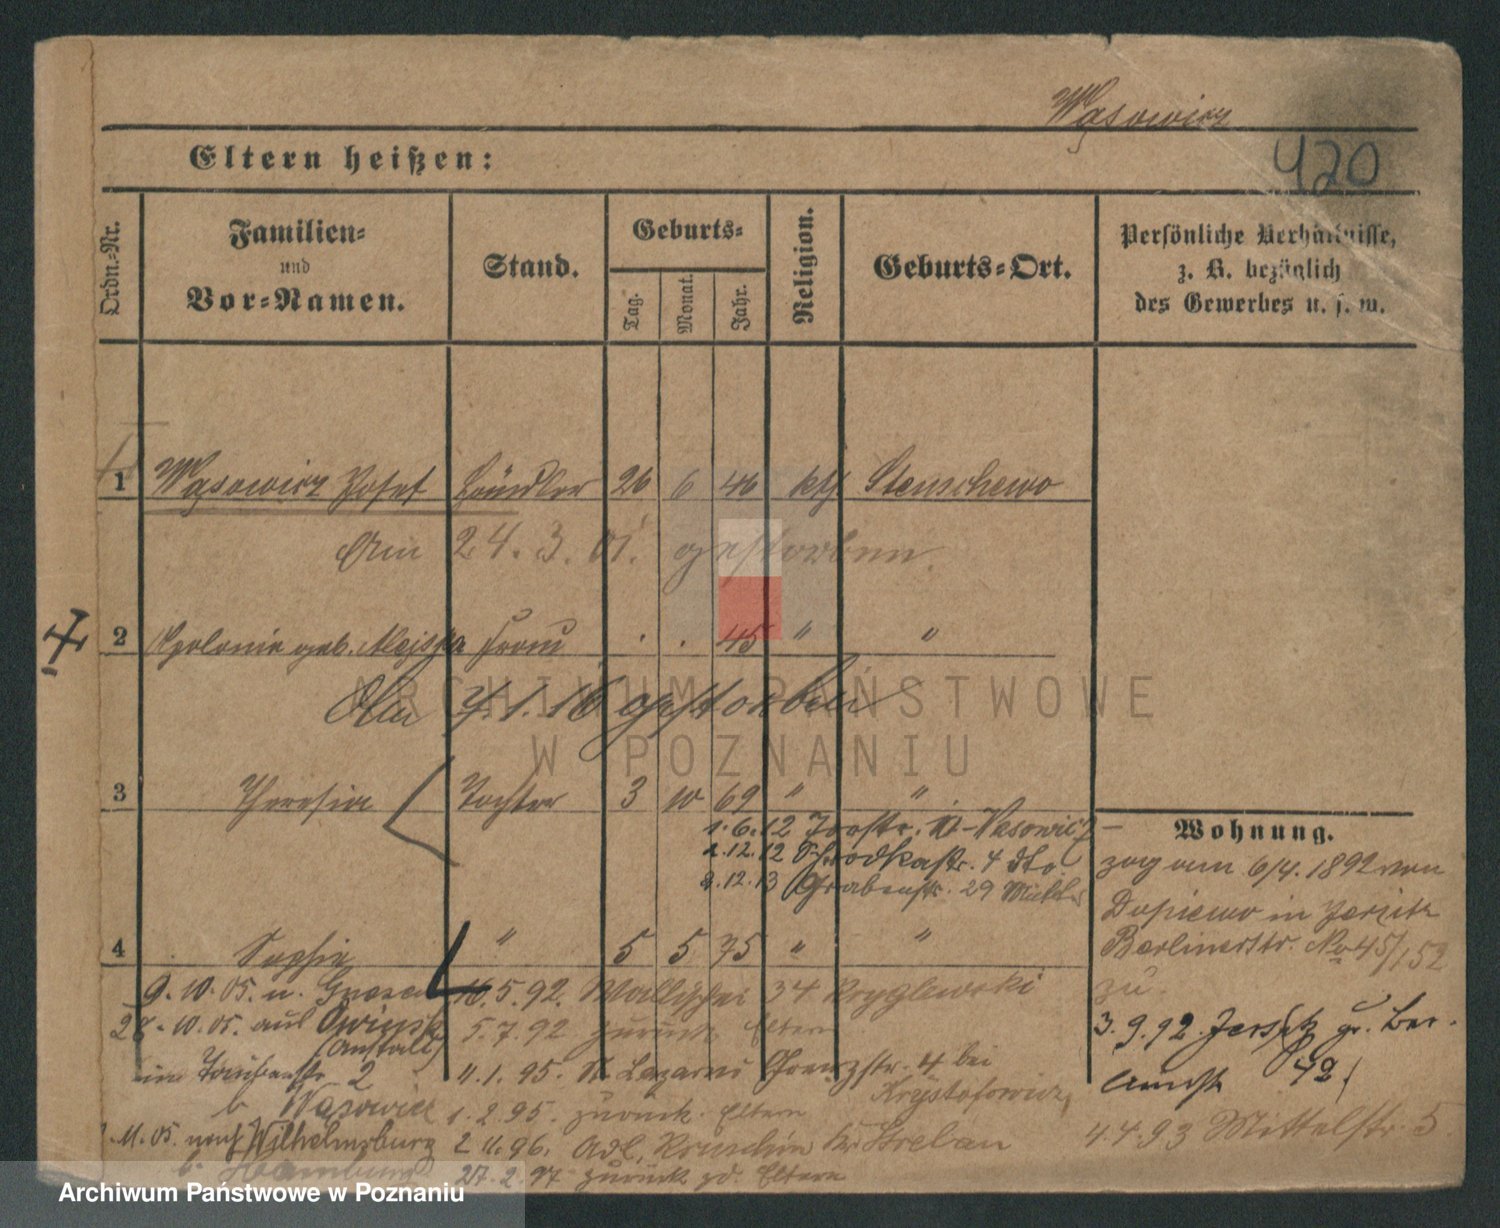 Wąsowicz
420
Eltern heißen:
Ordn.-Nr.
Familien-
und
Vor-Namen.
Stand.
Geburts-
Tag.
Monat.
Jahr.
Religion.
Geburts-Ort.
Persönliche Verhältnisse,
z. B. bezüglich
des Gewerbes u. s. w.
1 Wąsowicz Josef Händler 26 6 46 kth Stenschewo
Am 24. 3. 01. gestorben.
2 Apolonia geb. Frau . . 45 " "
Am 4. 1. 16 gestorben
3 Theresia Tochter 3 10 69 " "
1. 6. 12 Wasowicz
2. 12. 12 4 dto.
8. 12. 13 Grabenstr. 29
4 Sophie " 5 5 75 " "
Wohnung.
zog am 6/4. 1892 von
Dopiewo in Jersitz
Berlinerstr. No 45/152
zu.
3. 9. 92 Jersitz gr. Ber-
42
4. 4. 93 Mittelstr. 5
9. 10. 05. n. Gnesen
10. 5. 92. Wallischei 34 Kryglewski
28. 10. 05. auf Owinsk
(Anstalt)
5. 7. 92 zurück Eltern
2
4. 1. 95. St. Lazarus 4 bei
Krystofowicz,
b. Wąsowicz
1. 2. 95. zurück Eltern
11. 05. nach Wilhelmsburg
2. 11. 96. Adl. Kr. Strelau
b. Hamburg
27. 2. 97 zurück Eltern
ARCHIWUM PAŃSTWOWE
W POZNANIU
Archiwum Państwowe w Poznaniu